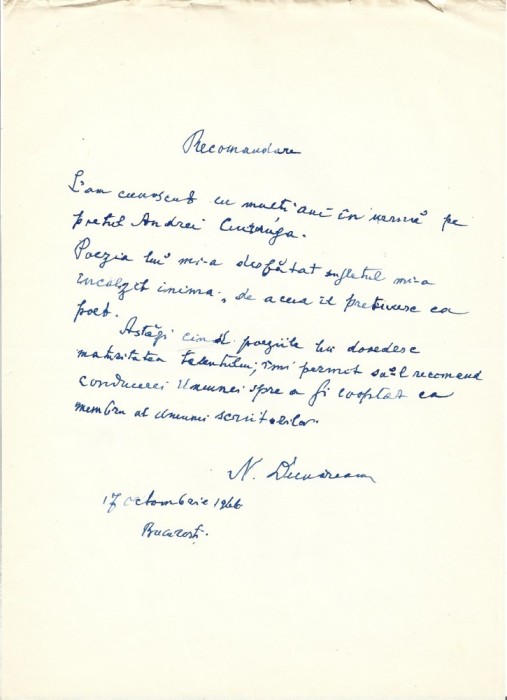 Recomandare
L-am cunoscut cu mulți ani în urmă pe
poetul Andrei Ciurunga.
Poezia lui mi-a desfătat sufletul mi-a
încălzit inima, de aceea îl prețuesc ca
poet.
Astăzi cînd poeziile lui dovedesc
maturitatea talentului, îmi permit să-l recomand
conducerei Uniunei spre a fi cooptat ca
membru al Uniunei scriitorilor.
N. Dunăreanu
17 octombrie 1966
București.